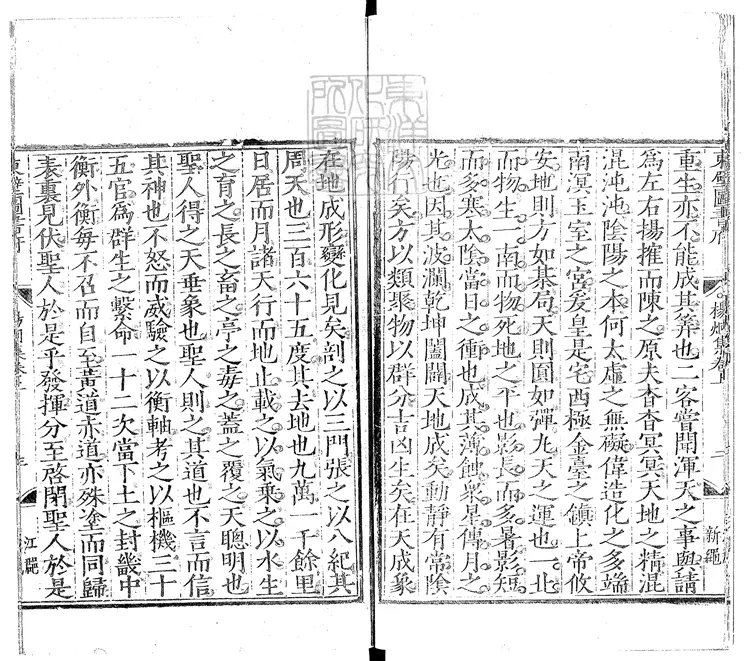 重生亦不能成其筭也二客嘗聞渾天之事歟請
爲左右揚搉而陳之原夫杳杳冥冥天地之精混
混沌沌陰陽之本何太虛之無礙偉造化之多端
南溟玉室之宮爰皇是宅西極金臺之鎮上帝攸
安地則方如棊局天則圓如彈丸天之運也一北
而物生一南而物死地之平也影長而多暑影短
而多寒太陰當日之衝也成其薄蝕衆星傳月之
光也因其波瀾乾坤闔闢天地成矣動靜有常陰
陽行矣方以類聚物以群分吉凶生矣在天成象
新繩
在地成形變化見矣剖之以三門張之以八紀其
周天也三百六十五度其去地也九萬一千餘里
日居而月諸天行而地止載之以氣乘之以水生
之育之長之畜之亭之毒之蓋之覆之天聰明也
聖人得之天垂象也聖人則之其道也不言而信
其神也不怒而威驗之以衡軸考之以樞機三十
五官爲群生之繫命一十二次當下土之封畿中
衡外衡每不召而自至黃道赤道亦殊塗而同歸
表裏見伏聖人於是乎發揮分至啓閉聖人於是
江龎